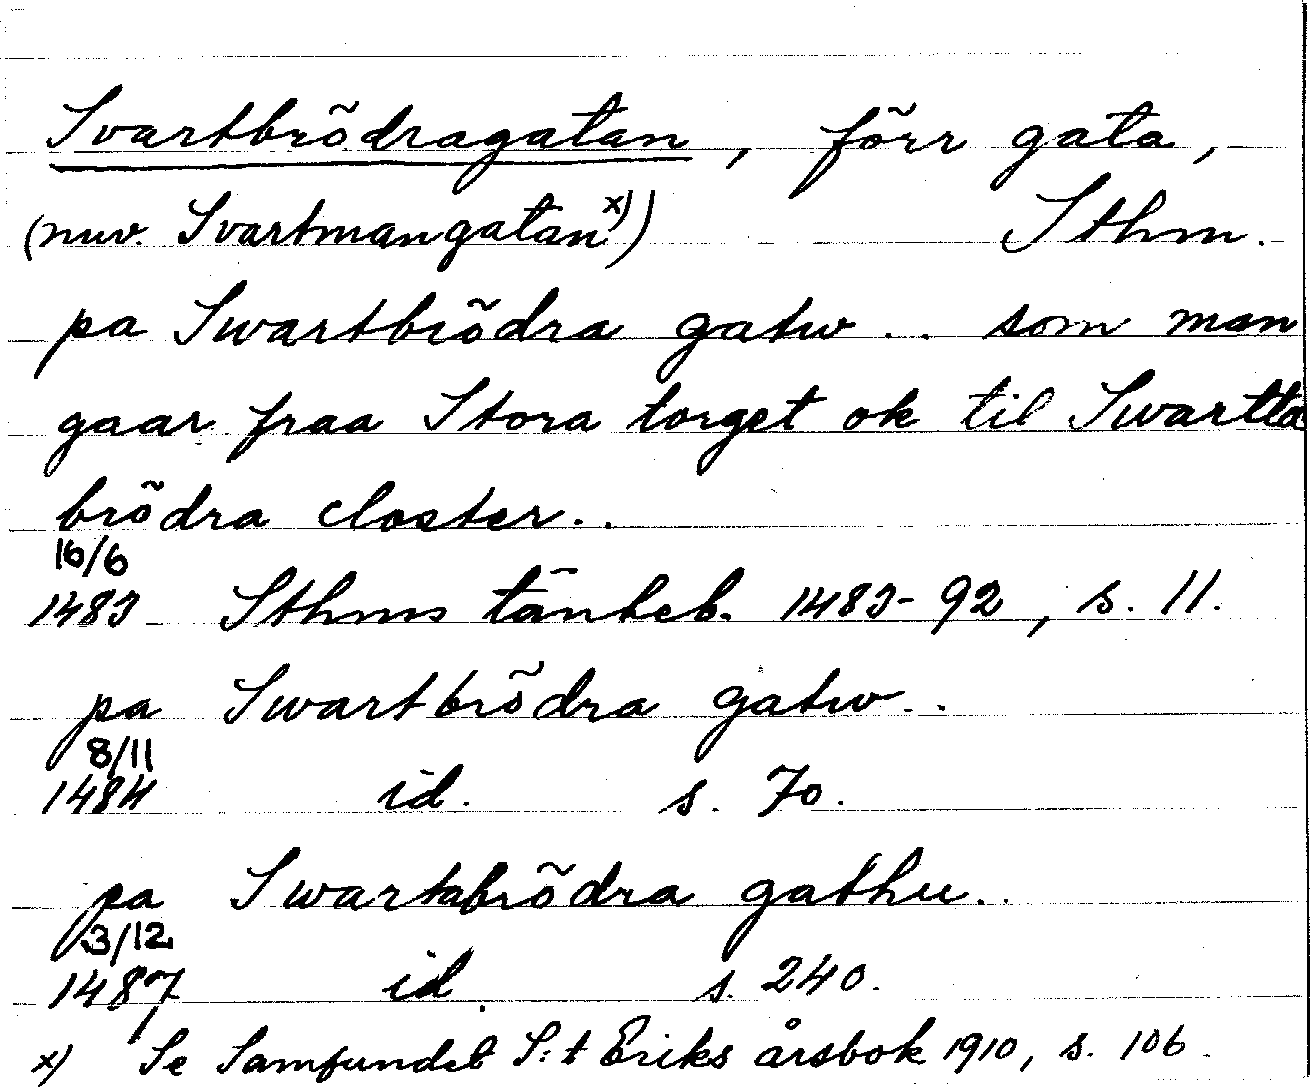 Svartbrödragatan, förr gata,
(nuv. Svartmangatan x)) Sthm.
pa Swartbrödra gatw .. som man
gaar fraa Stora torget ok til Swartta
brödra closter..
16/6
1483 Sthms tänkeb. 1483-92, s. 11.
pa Swartbrödra gatw..
8/11
1484 id. s. 70.
pa Swartabrödra gathu..
3/12
1487 id. s. 240.
x) Se Samfundet S:t Eriks årsbok 1910, s. 106.